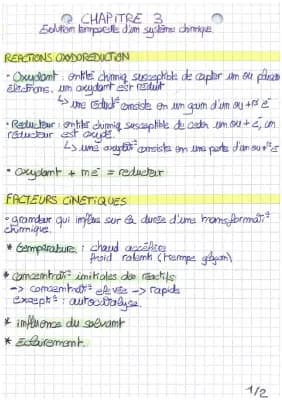 CHAPITRE 3
Evolution temporelle d'un système chimique.
REACTIONS OXYDOREDUCTION
• Oxydant : entité chimiq susceptible de capter un ou plusieurs
électrons. un oxydant est réduit
↳ une réduct° consiste en un gain d'un ou +rs e⁻
• Réducteur : entité chimiq susceptible de céder un ou + e⁻, un
réducteur est oxydé.
↳ une oxydat° consiste en une perte d'un ou +rs e⁻
• oxydant + m e⁻ = reducteur
FACTEURS CINETIQUES
• grandeur qui influe sur la durée d'une transformat°
chimique.
* température : chaud accélère
froid ralenti (trempe
* concentrat° initiales des réactifs
-> concentrat° élevée -> rapide
except° : autocatalyse.
* influence du solvant
* Eclairement.
1/2